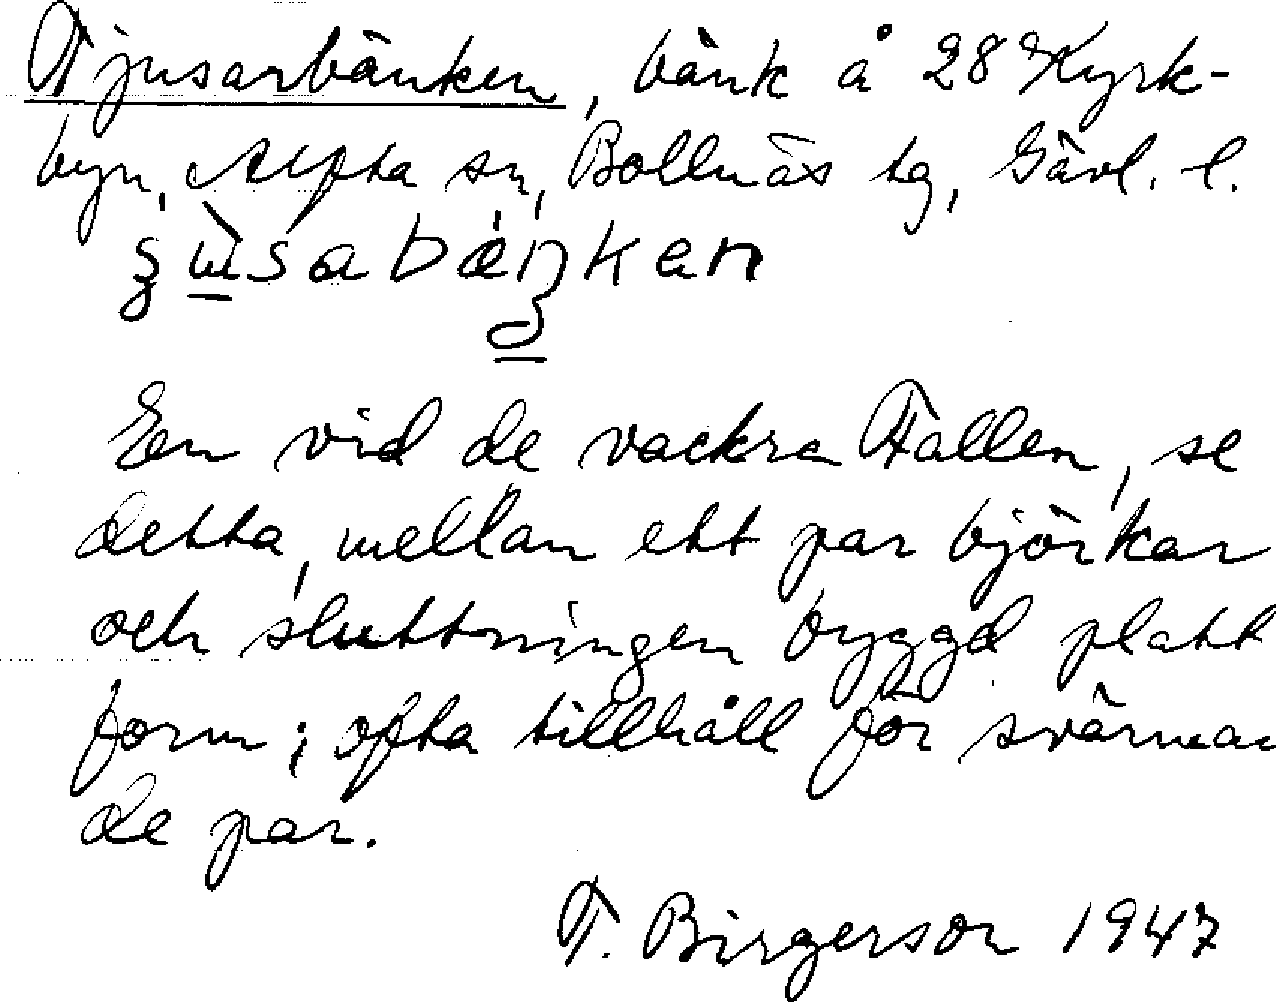 Tjusarbänken, bänk å 28 Kyrk-
byn, Alfta sn, Bollnäs tg, Gävl. l.
En vid de vackra Tallen, se
detta, mellan ett par björkar
och sluttningen byggd platt
form; ofta tillhåll för svärman
de par.
T. Birgerson 1947